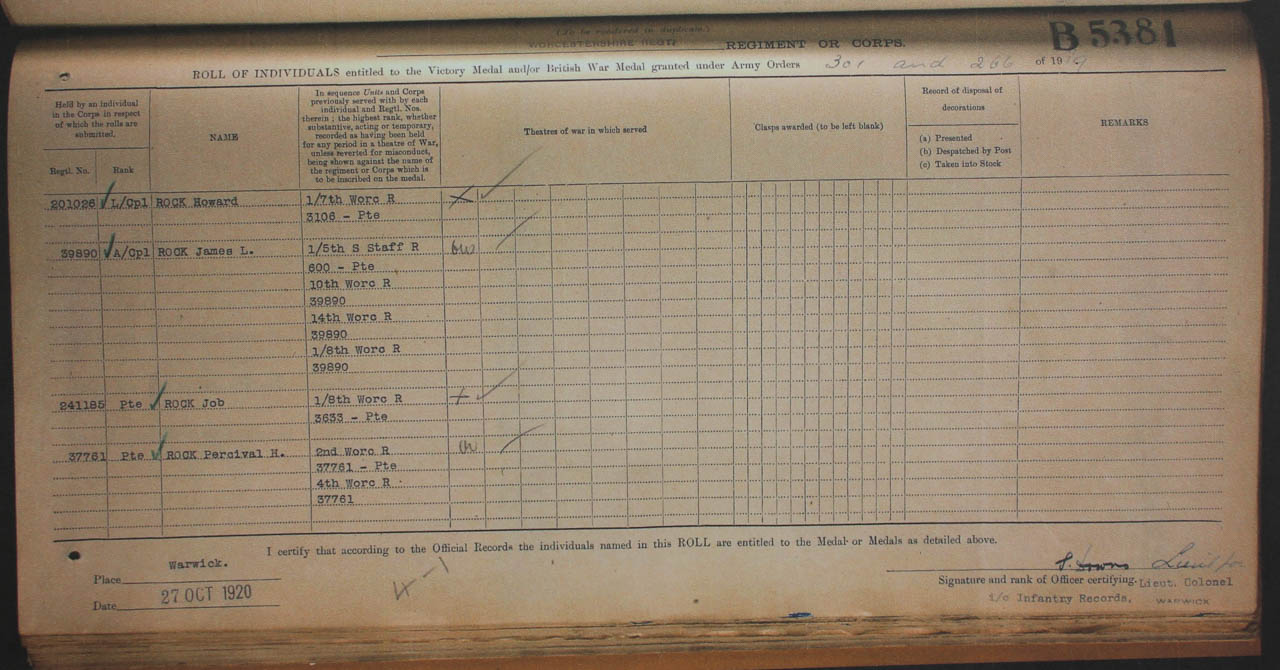 (To be rendered in duplicate.)
WORCESTERSHIRE REGT. REGIMENT OR CORPS.
B 5381
ROLL OF INDIVIDUALS entitled to the Victory Medal and/or British War Medal granted under Army Orders 301 and 266 of 1919
Held by an individual
in the Corps in respect
of which the rolls are
submitted.
Regtl. No. Rank
NAME
In sequence Units and Corps
previously served with by each
individual and Regtl. Nos.
therein ; the highest rank, whether
substantive, acting or temporary,
recorded as having been held
for any period in a theatre of War,
unless reverted for misconduct,
being shown against the name of
the regiment or Corps which is
to be inscribed on the medal.
Theatres of war in which served
Clasps awarded (to be left blank)
Record of disposal of
decorations
(a) Presented
(b) Despatched by Post
(c) Taken into Stock
REMARKS
201026 L/Cpl ROCK Howard 1/7th Worc R
3106 - Pte
39890 A/Cpl ROCK James L. 1/5th S Staff R
600 - Pte
10th Worc R
39890
14th Worc R
39890
1/8th Worc R
39890
241185 Pte ROCK Job 1/8th Worc R
3633 - Pte
37761 Pte ROCK Percival H. 2nd Worc R
37761 - Pte
4th Worc R
37761
I certify that according to the Official Records the individuals named in this ROLL are entitled to the Medal or Medals as detailed above.
Place Warwick.
Date 27 OCT 1920
4-1
Signature and rank of Officer certifying. Lieut. Colonel
i/c Infantry Records, WARWICK